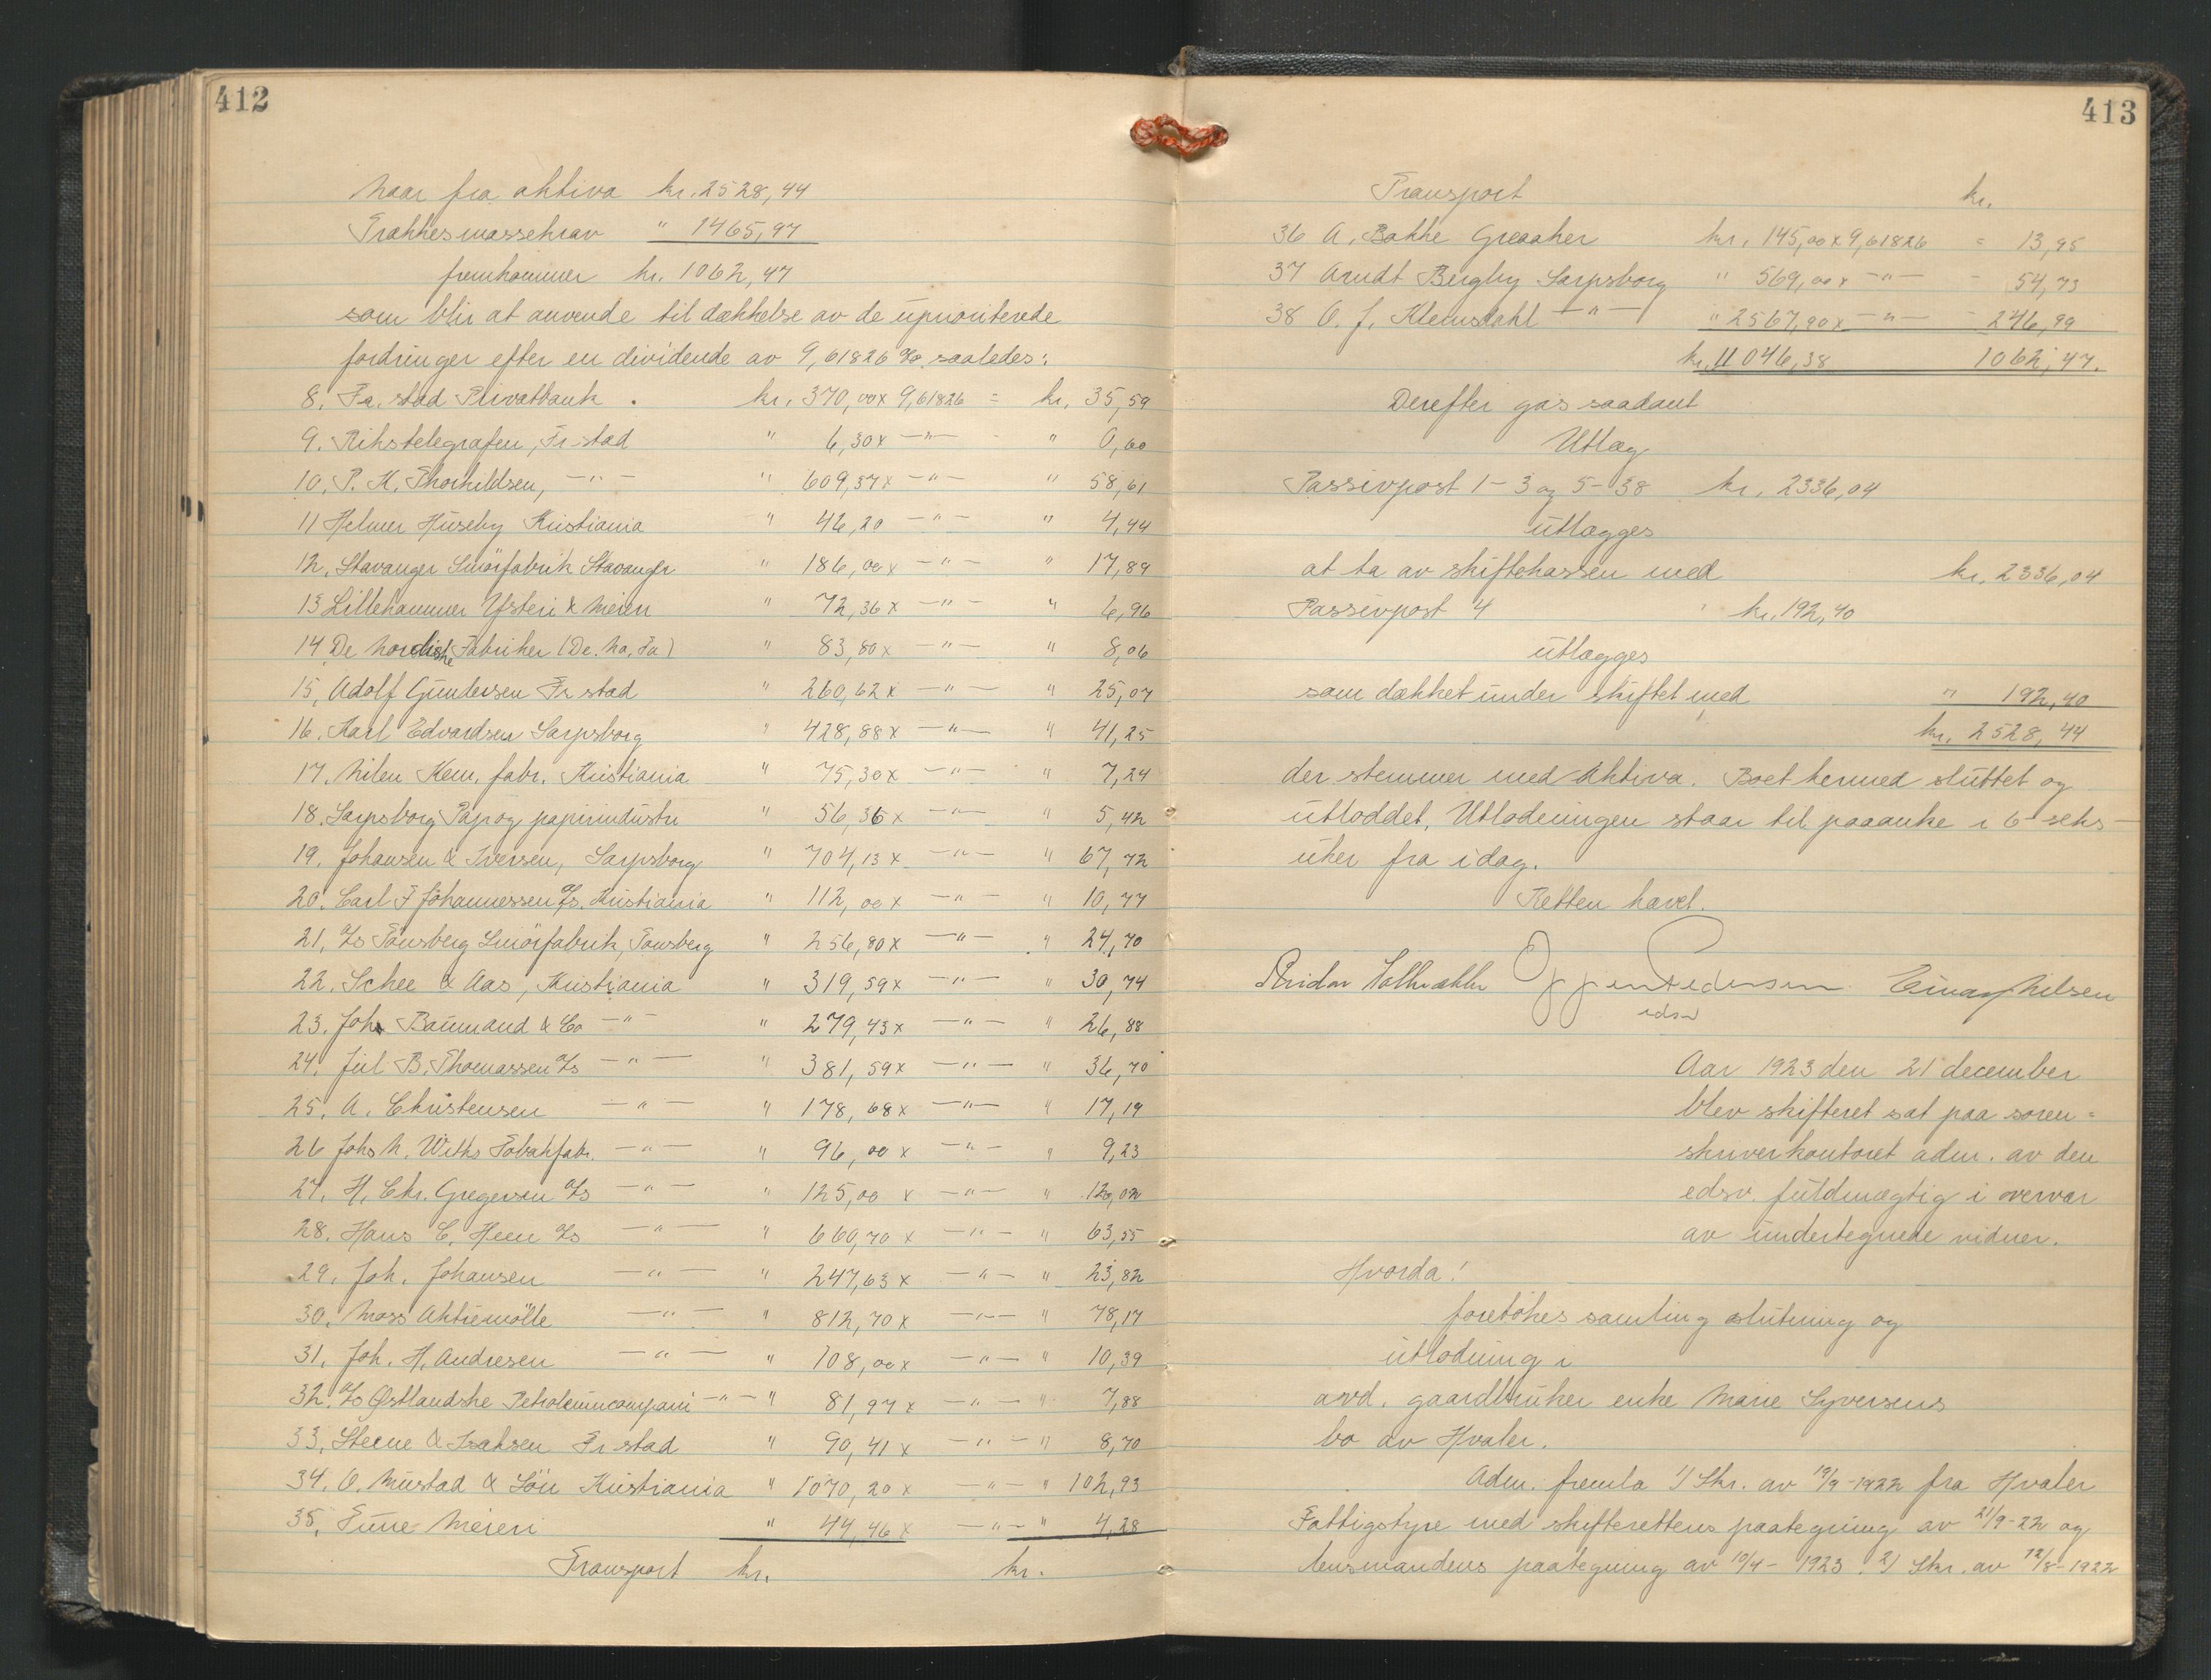 412
Naar fra aktiva kr. 2528,44
Trækkes massekrav " 1465,97
fremkommer kr. 1062,47
som blir at anvende til dækkelse av de uprioriterede
fordringer efter en dividende av 9,61826 % saaledes:
8. Fr.stad Privatbank. kr. 370,00 x 9,61826 = kr. 35,59
9. Rikstelegrafen, Fr-stad " 6,30 x —"— " 0,60
10. P. K. Thorkildsen, —"— " 609,37 x —"— " 58,61
11 Helmer Huseby Kristiania " 46,20 —"— " 4,44
12. Stavanger Smörfabrik Stavanger " 186,00 x —"— " 17,89
13 Lillehammer Ysteri & Meieri " 72,36 x —"— " 6,96
14 De Nordiske Fabriker (De. No. Fa) " 83,80 x —"— " 8,06
15, Adolf Gundersen Fr stad " 260,62 x —"— " 25,07
16. Karl Edvardsen Sarpsborg " 428,88 x —"— " 41,25
17. Nilen Kem. fabr. Kristiania " 75,30 x —"— " 7,24
18. Sarpsborg Pap og papirindustri " 56,36 x —"— " 5,42
19. Johansen & Iversen, Sarpsborg " 704,13 x —"— " 67,72
20. Carl F Johannessen A/s. Kristiania " 112,00 x —"— " 10,77
21. A/s Tønsberg Smörfabrik, Tønsberg " 256,80 x —"— " 24,70
22. Schee & Aas, Kristiania " 319,59 x —"— " 30,74
23. Joh. Baumand & Co —"— " 279,43 x —"— " 26,88
24. Jul B. Thomassen A/s —"— " 381,59 x —"— " 36,70
25. A. Christensen —"— " 178,68 x —"— " 17,19
26 Johs N. Withs Tobakfabr. —"— " 96,00 x —"— " 9,23
27. H. Chr. Gregersen A/s —"— " 125,00 x —"— " 12,02
28. Hans C. Heem A/s —"— " 660,70 x —"— " 63,55
29. Joh. Johansen —"— " 247,63 x —"— " 23,82
30. Moss Aktiemölle —"— " 812,70 x —"— " 78,17
31. Joh. H. Andresen —"— " 108,00 x —"— " 10,39
32. A/s Østlandske Petroleumcompani —"— " 81,97 x —"— " 7,88
33. Steene & Isaksen Fr stad " 90,41 x —"— " 8,70
34. O. Mustad & Sön Kristiania " 1070,20 x —"— " 102,93
35. Tune Meieri " 44,46 x —"— " 4,28
Transport kr. kr.
413
Transport kr.
36 A. Bakke Greaaker kr. 145,00 x 9,61826 = 13,95
37 Arndt Bergby Sarpsborg " 569,00 x —"— - 54,73
38 O. J. Klemsdahl —"— " 2567,90 x —"— - 246,99
kr. 11046,38 1062,47.
Derefter gas saadant
Utlæg
Passivpost 1-3 og 5-38 kr. 2336,04
utlægges
at ta av skiftekassen med kr. 2336,04
Passivpost 4 kr. 192,40
utlægges
som dækket under skiftet med " 192,40
kr. 2528,44
der stemmer med Aktiva. Boet hermed sluttet og
utloddet. Utlodningen staar til paaanke i 6 seks
uker fra idag.
Retten hævet.
Jppen Pedersen Einar Nilsen
edsv
Aar 1923 den 21 december
blev skifteret sat paa soren=
skriverkontoret adm. av den
edsv. fuldmægtig i overvær
av undertegnede vidner.
Hvorda!
foretokes samling slutning og
utlodning i
avd. gaardbruker enke Marie Syversens
bo av Hvaler.
Adm. fremla 1) Skr. av 19/9-1922 fra Hvaler
Fattigstyre med skifterettens paategning av 21/9-22 og
lensmandens paategning av 10/4-1923. 2) Skr. av 12/8-1922